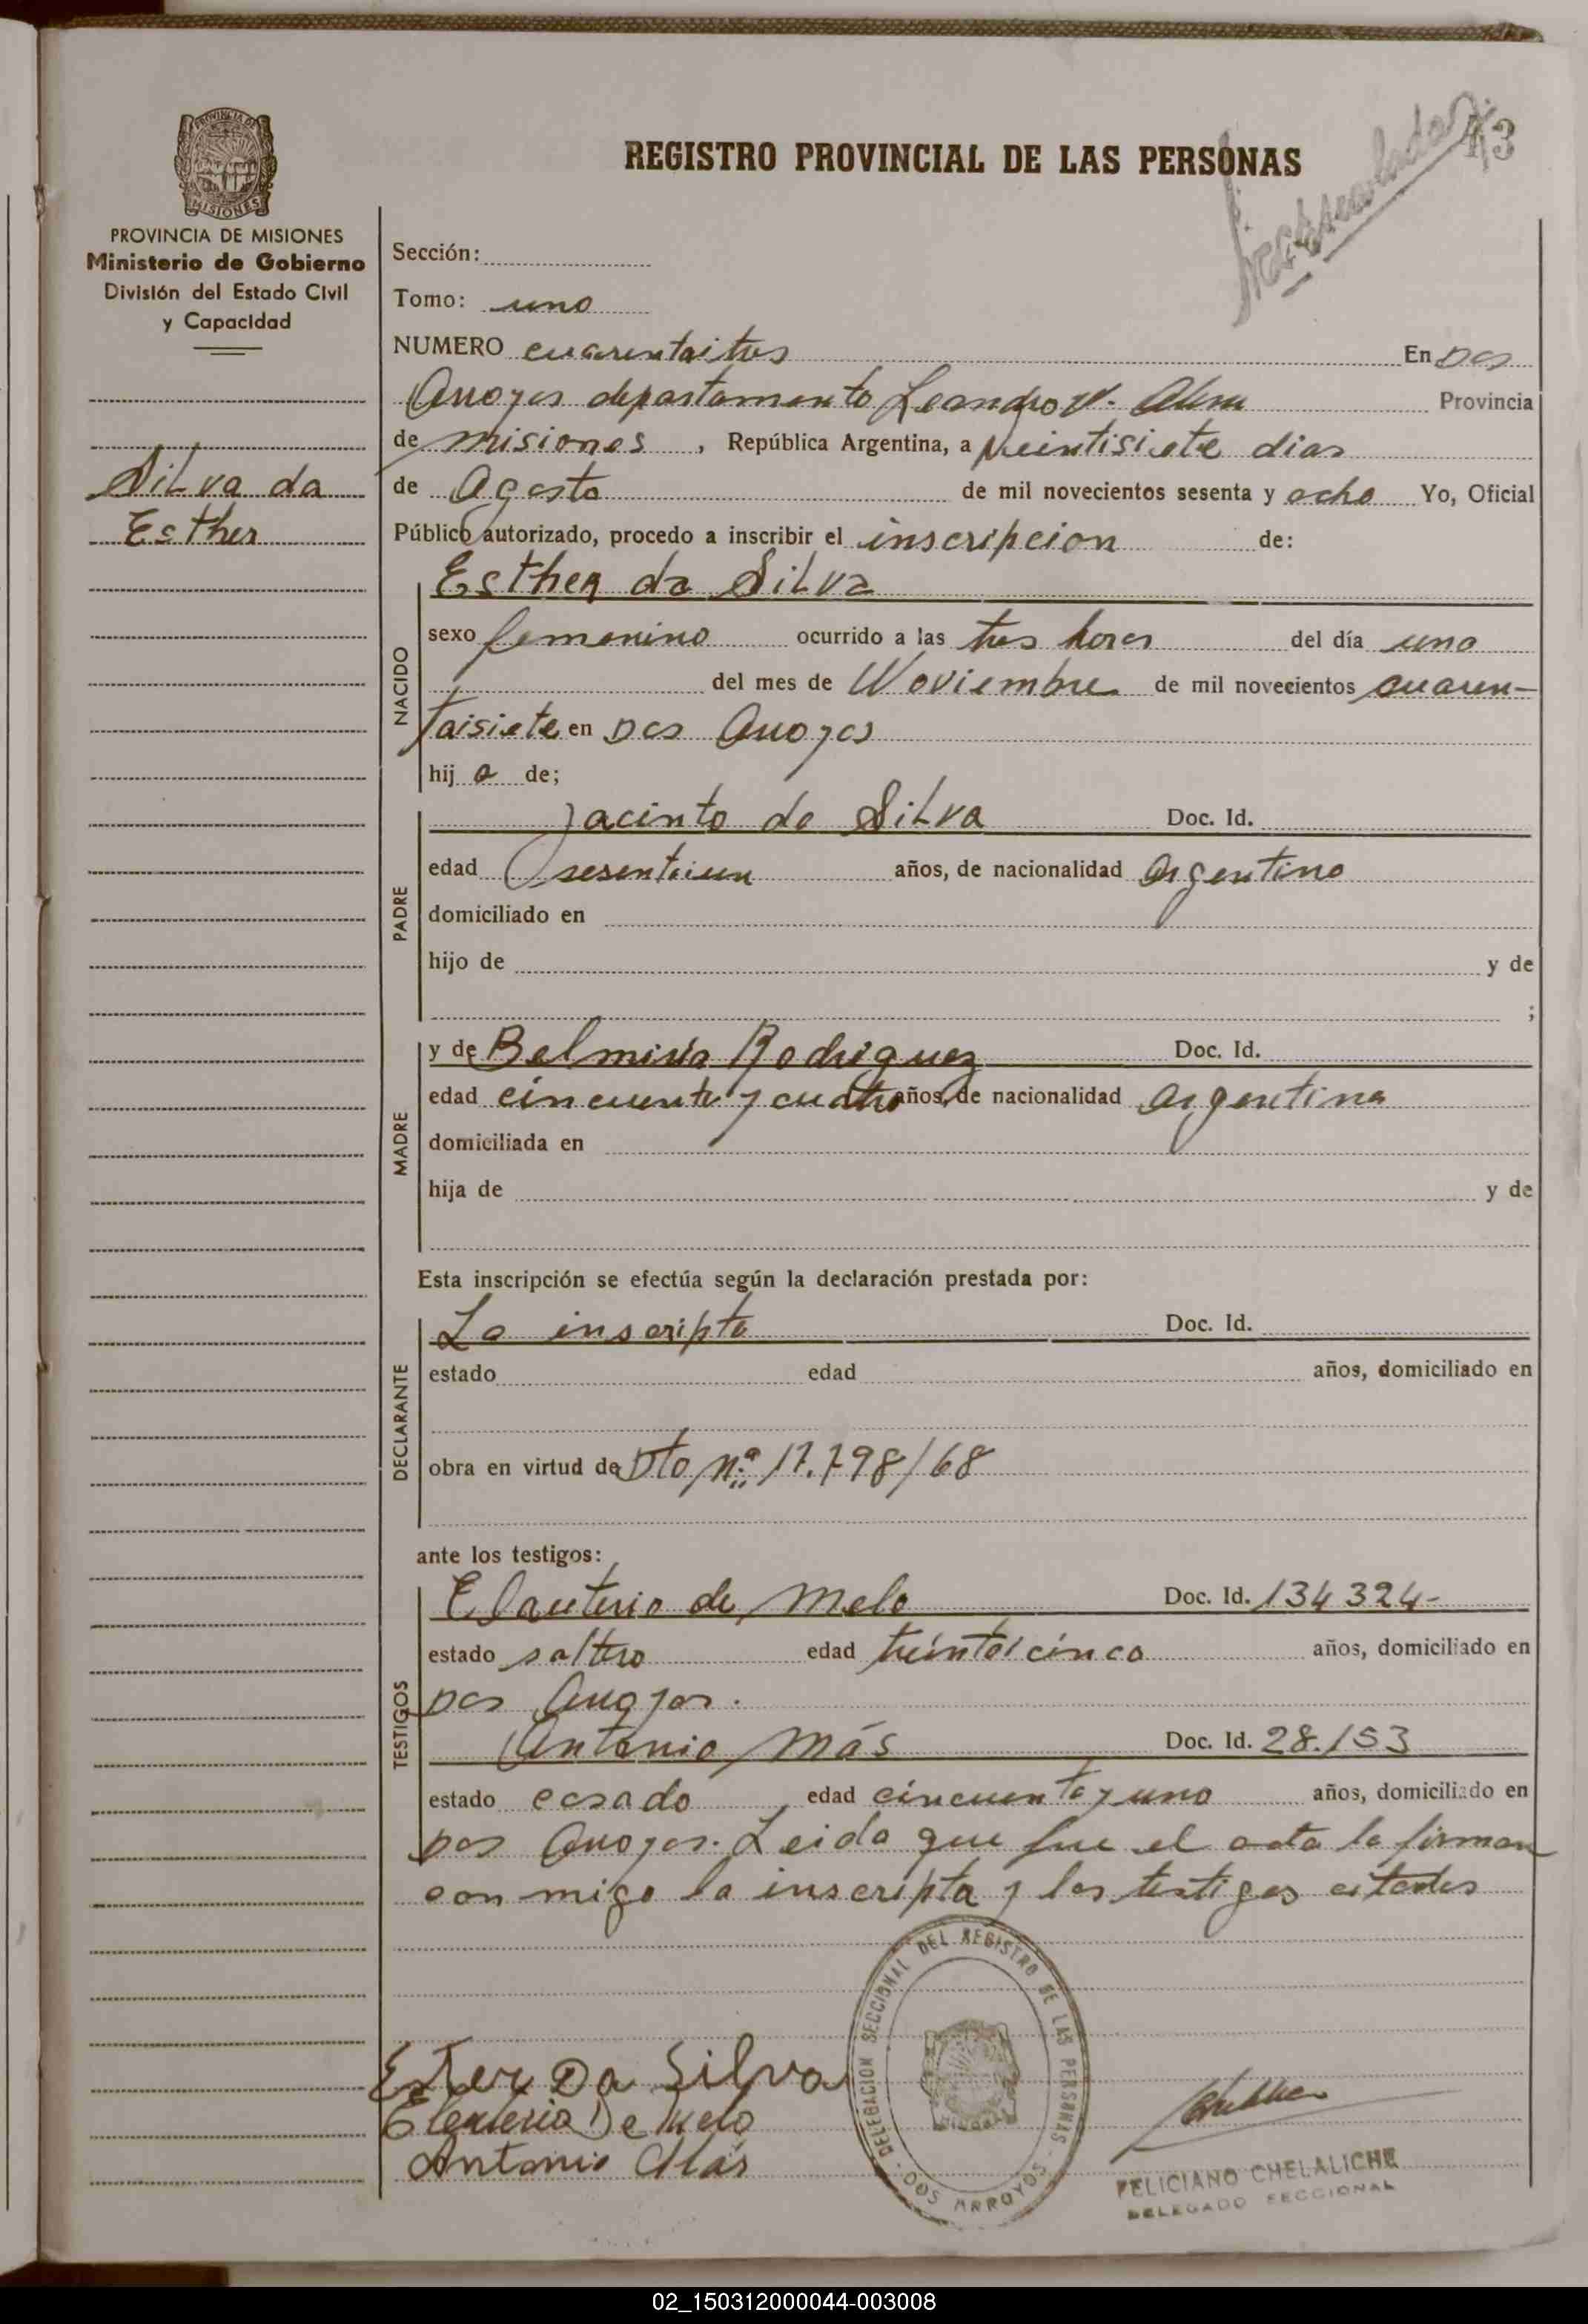 REGISTRO PROVINCIAL DE LAS PERSONAS
43
PROVINCIA DE MISIONES
Ministerio de Gobierno
División del Estado Civil
y Capacidad
Silva da
Esther
Sección:
Tomo: uno
NUMERO cuarentaitres En Dos
Arroyos departamento Leandro N. Alem Provincia
de misiones, República Argentina, a veintisiete dias
de Agosto de mil novecientos sesenta y ocho Yo, Oficial
Público autorizado, procedo a inscribir el inscripcion de:
NACIDO
Esther da Silva
sexo femenino ocurrido a las tres horas del día uno
del mes de Noviembre de mil novecientos cuaren-
taisiete en Dos Arroyos
hija de;
PADRE
Jacinto da Silva Doc. Id.
edad sesentaiun años, de nacionalidad Argentino
domiciliado en
hijo de y de
;
MADRE
y de Belmiria Rodriguez Doc. Id.
edad cincuenta y cuatro años, de nacionalidad argentina
domiciliada en
hija de y de
Esta inscripción se efectúa según la declaración prestada por:
DECLARANTE
La inscripta Doc. Id.
estado edad años, domiciliado en
obra en virtud de Dto nº 17.798/68
ante los testigos:
TESTIGOS
Elauterio de Melo Doc. Id. 134324-
estado soltero edad treintaicinco años, domiciliado en
Dos Arroyos.
Antonio Más Doc. Id. 28.153
estado casado, edad cincuenta y uno años, domiciliado en
Dos Arroyos. Leida que fue el acta la firman
con migo la inscripta y los testigos citados
DELEGACION SECCIONAL DEL REGISTRO DE LAS PERSONAS
DOS ARROYOS
MISIONES
Ester Da Silva
Eleuterio De Melo
Antonio Más
FELICIANO CHELALICHE
DELEGADO SECCIONAL
02_150312000044-003008